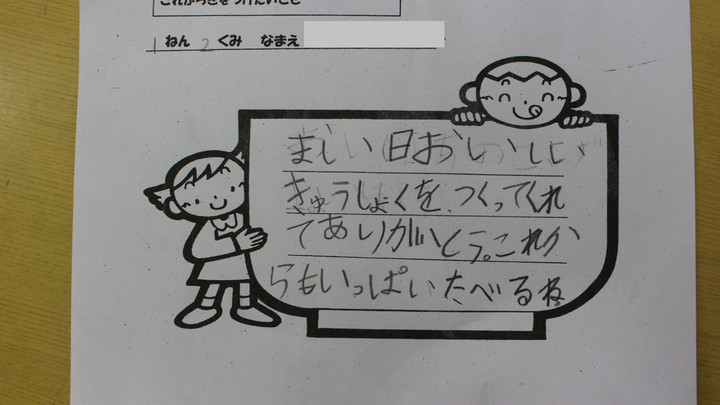 これからきをつけたいこと
1 ねん 2 くみ なまえ
まいい日おいしい
きゅうしょくを、つくってくれ
てありがとう。これか
らもいっぱいたべるね